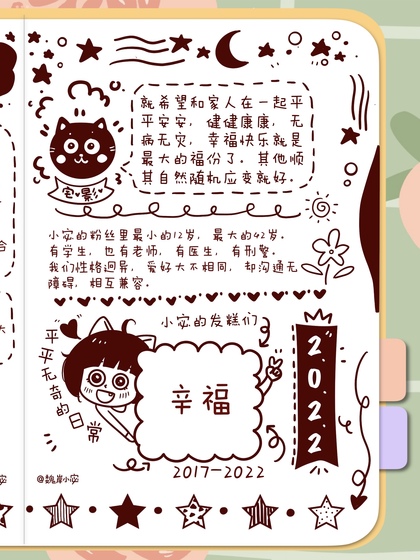 就希望和家人在一起平
平安安，健健康康，无
病无灾，幸福快乐就是
最大的福份了。其他顺
其自然随机应变就好。
小宓的粉丝里最小的12岁，最大的42岁。
有学生，也有老师，有医生，有刑警。
我们性格迥异，爱好大不相同，却沟通无
障碍，相互兼容。
小宓的发糕们
平平无奇的日常
辛福
2017-2022
2.0.2.2